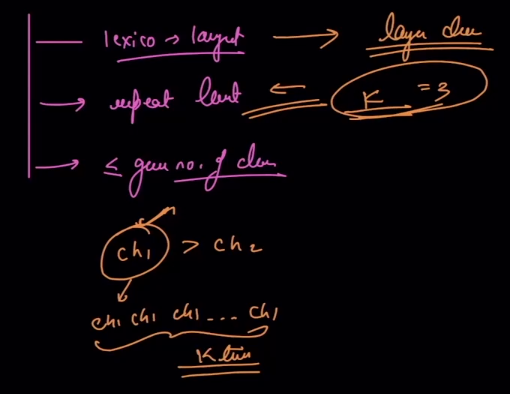 lexico → largest → larger char
→ repeat limit ← K = 3
→ ≤ given no. of char
ch1 > ch2
ch1 ch1 ch1 ... ch1
K times